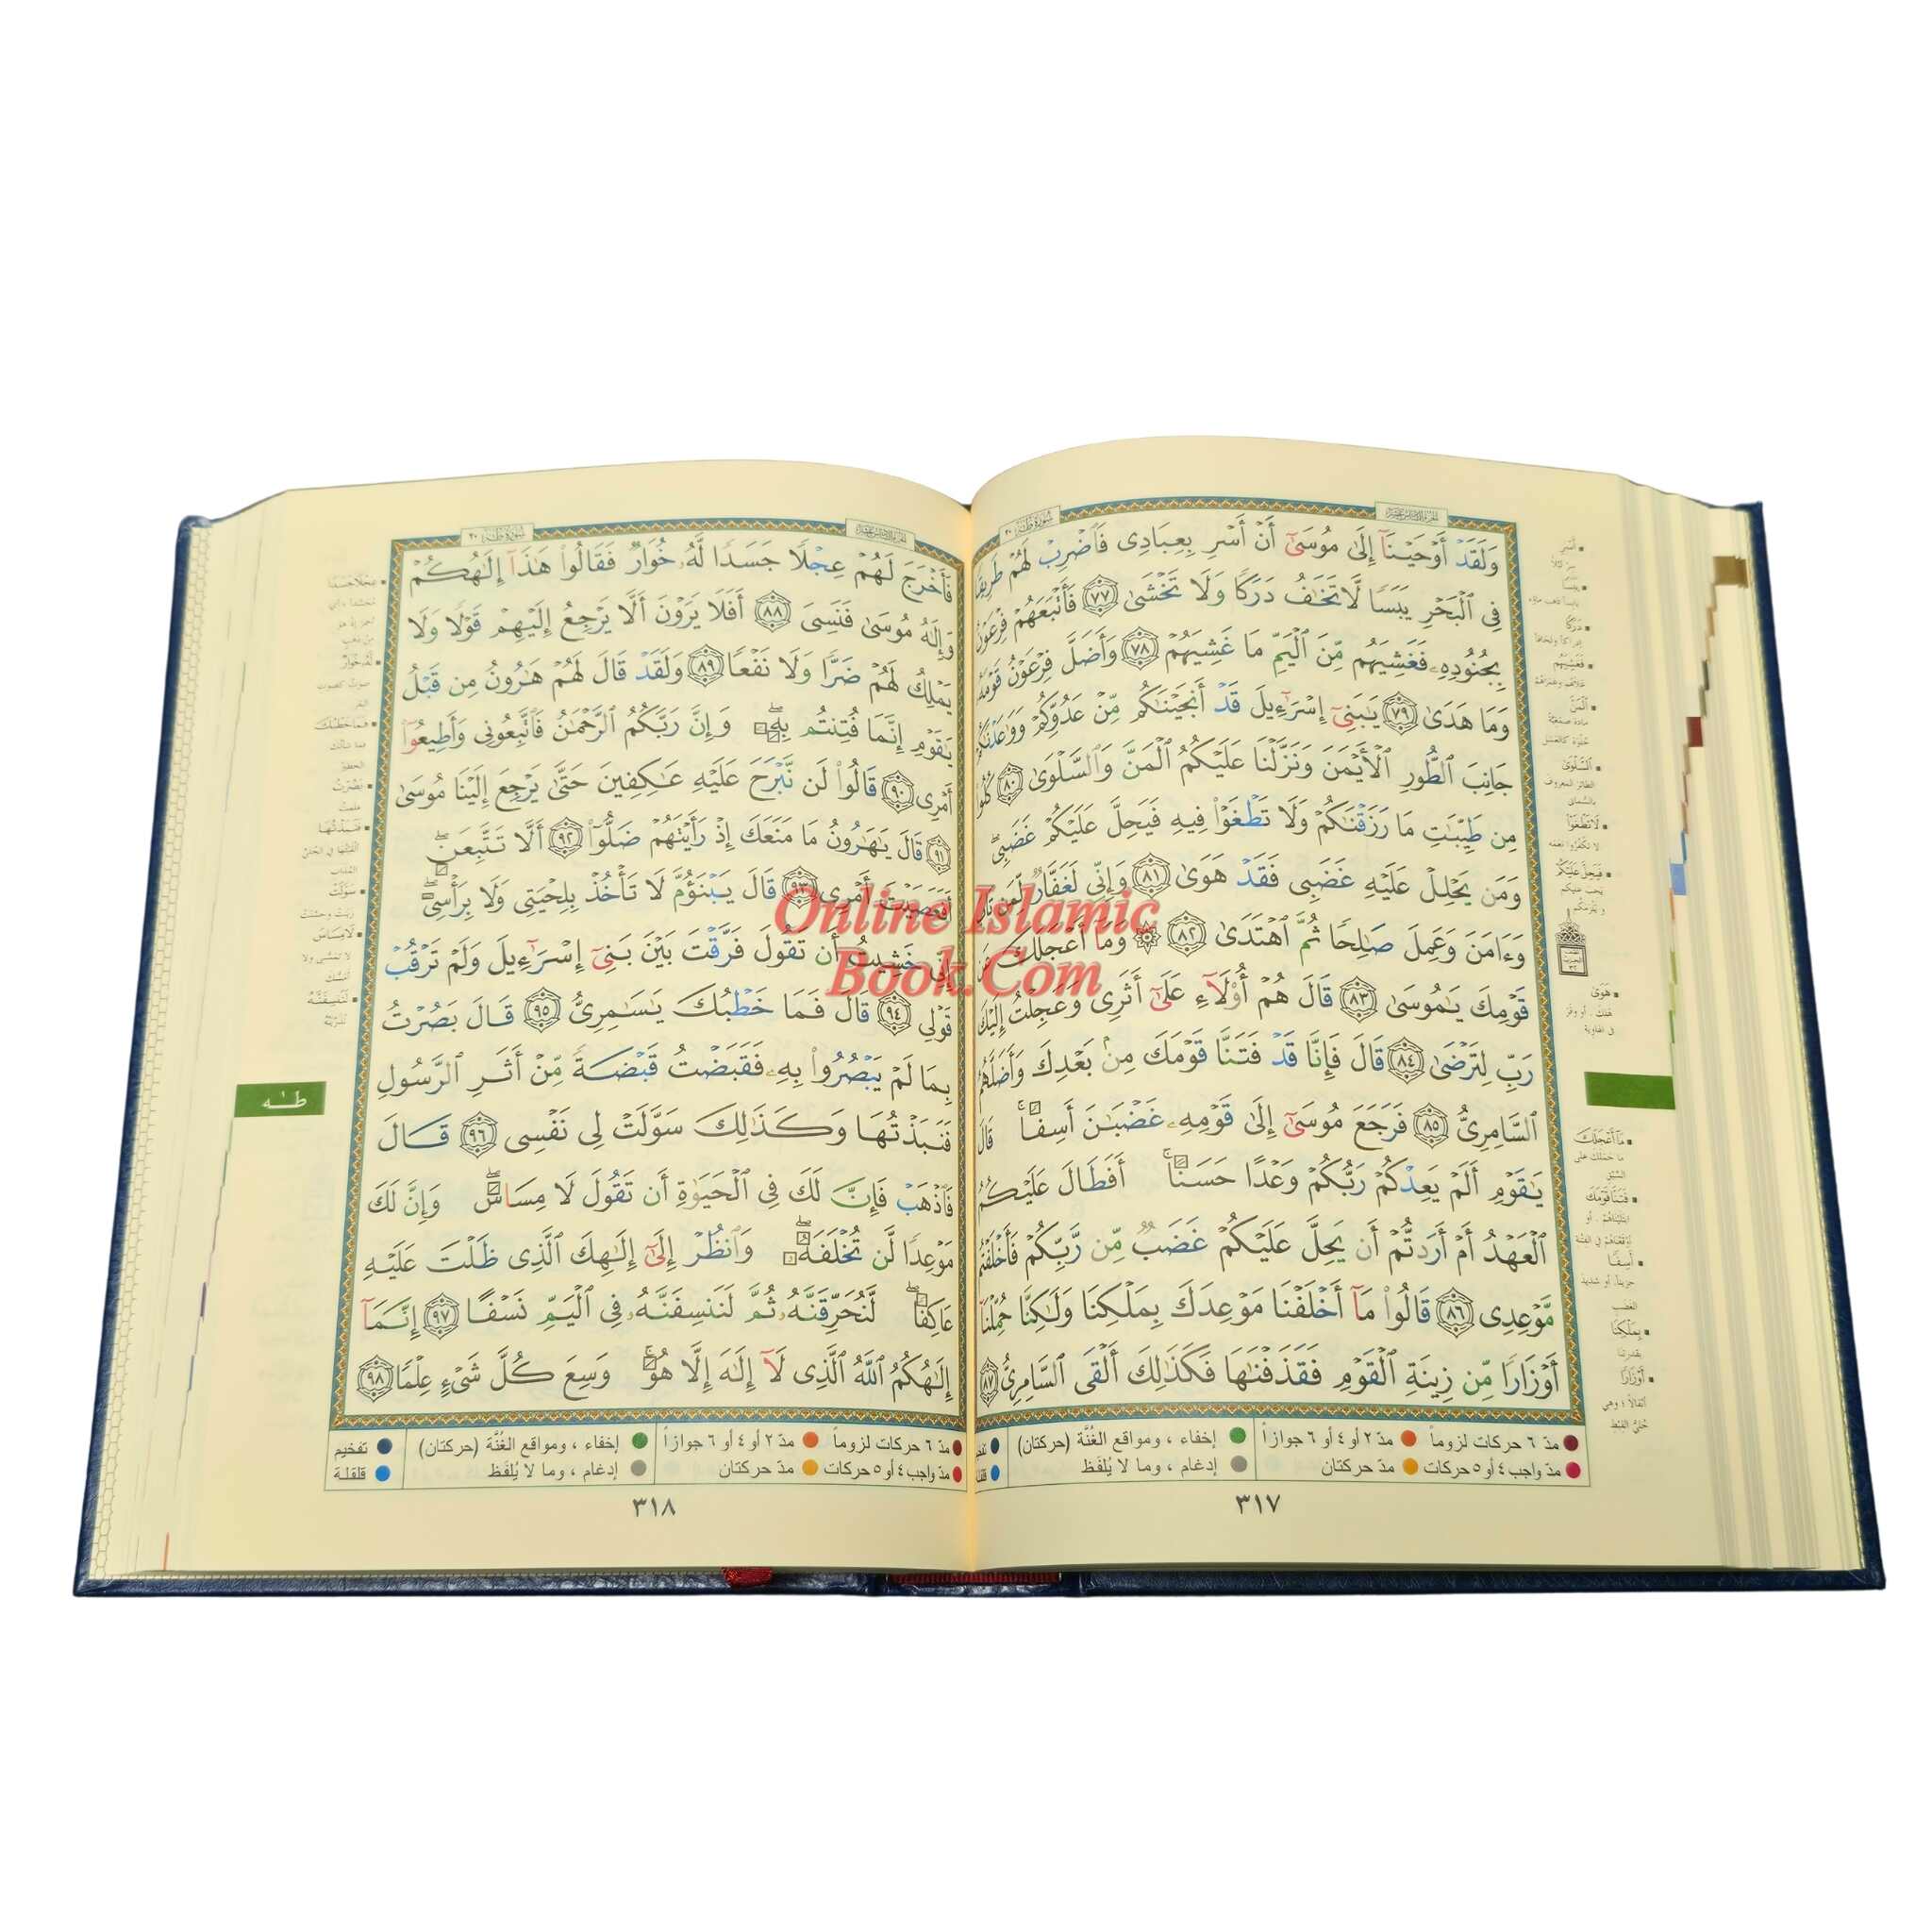 سُورَةُ طٰهٰ ٢٠
وَلَقَدْ أَوْحَيْنَآ إِلَىٰ مُوسَىٰٓ أَنْ أَسْرِ بِعِبَادِى فَٱضْرِبْ لَهُمْ طَرِيقًا
فِى ٱلْبَحْرِ يَبَسًا لَّا تَخَٰفُ دَرَكًا وَلَا تَخْشَىٰ ٧٧ فَأَتْبَعَهُمْ فِرْعَوْنُ
بِجُنُودِهِۦ فَغَشِيَهُم مِّنَ ٱلْيَمِّ مَا غَشِيَهُمْ ٧٨ وَأَضَلَّ فِرْعَوْنُ قَوْمَهُۥ
وَمَا هَدَىٰ ٧٩ يَٰبَنِىٓ إِسْرَٰٓءِيلَ قَدْ أَنجَيْنَٰكُم مِّنْ عَدُوِّكُمْ وَوَٰعَدْنَٰكُمْ
جَانِبَ ٱلطُّورِ ٱلْأَيْمَنَ وَنَزَّلْنَا عَلَيْكُمُ ٱلْمَنَّ وَٱلسَّلْوَىٰ ٨٠ كُلُوا۟
مِن طَيِّبَٰتِ مَا رَزَقْنَٰكُمْ وَلَا تَطْغَوْا۟ فِيهِ فَيَحِلَّ عَلَيْكُمْ غَضَبِى
وَمَن يَحْلِلْ عَلَيْهِ غَضَبِى فَقَدْ هَوَىٰ ٨١ وَإِنِّى لَغَفَّارٌ لِّمَن تَابَ
وَءَامَنَ وَعَمِلَ صَٰلِحًا ثُمَّ ٱهْتَدَىٰ ٨٢ ۞ وَمَآ أَعْجَلَكَ عَن
قَوْمِكَ يَٰمُوسَىٰ ٨٣ قَالَ هُمْ أُو۟لَآءِ عَلَىٰٓ أَثَرِى وَعَجِلْتُ إِلَيْكَ
رَبِّ لِتَرْضَىٰ ٨٤ قَالَ فَإِنَّا قَدْ فَتَنَّا قَوْمَكَ مِنۢ بَعْدِكَ وَأَضَلَّهُمُ
ٱلسَّامِرِىُّ ٨٥ فَرَجَعَ مُوسَىٰٓ إِلَىٰ قَوْمِهِۦ غَضْبَٰنَ أَسِفًا قَالَ
يَٰقَوْمِ أَلَمْ يَعِدْكُمْ رَبُّكُمْ وَعْدًا حَسَنًا أَفَطَالَ عَلَيْكُمُ
ٱلْعَهْدُ أَمْ أَرَدتُّمْ أَن يَحِلَّ عَلَيْكُمْ غَضَبٌ مِّن رَّبِّكُمْ فَأَخْلَفْتُم
مَّوْعِدِى ٨٦ قَالُوا۟ مَآ أَخْلَفْنَا مَوْعِدَكَ بِمَلْكِنَا وَلَٰكِنَّا حُمِّلْنَآ
أَوْزَارًا مِّن زِينَةِ ٱلْقَوْمِ فَقَذَفْنَٰهَا فَكَذَٰلِكَ أَلْقَى ٱلسَّامِرِىُّ ٨٧
مدّ ٦ حركات لزوماً مدّ ٢ أو ٤ أو ٦ جوازاً إخفاء ، ومواقع الغُنَّة (حركتان)
مدّ واجب ٤ أو ٥ حركات مدّ حركتان إدغام ، وما لا يُلفَظ
٣١٧
سُورَةُ طٰهٰ ٢٠
فَأَخْرَجَ لَهُمْ عِجْلًا جَسَدًا لَّهُۥ خُوَارٌ فَقَالُوا۟ هَٰذَآ إِلَٰهُكُمْ
وَإِلَٰهُ مُوسَىٰ فَنَسِىَ ٨٨ أَفَلَا يَرَوْنَ أَلَّا يَرْجِعُ إِلَيْهِمْ قَوْلًا وَلَا
يَمْلِكُ لَهُمْ ضَرًّا وَلَا نَفْعًا ٨٩ وَلَقَدْ قَالَ لَهُمْ هَٰرُونُ مِن قَبْلُ
يَٰقَوْمِ إِنَّمَا فُتِنتُم بِهِۦ وَإِنَّ رَبَّكُمُ ٱلرَّحْمَٰنُ فَٱتَّبِعُونِى وَأَطِيعُوٓا۟
أَمْرِى ٩٠ قَالُوا۟ لَن نَّبْرَحَ عَلَيْهِ عَٰكِفِينَ حَتَّىٰ يَرْجِعَ إِلَيْنَا مُوسَىٰ
٩١ قَالَ يَٰهَٰرُونُ مَا مَنَعَكَ إِذْ رَأَيْتَهُمْ ضَلُّوٓا۟ ٩٢ أَلَّا تَتَّبِعَنِ
أَفَعَصَيْتَ أَمْرِى ٩٣ قَالَ يَبْنَؤُمَّ لَا تَأْخُذْ بِلِحْيَتِى وَلَا بِرَأْسِىٓ
إِنِّى خَشِيتُ أَن تَقُولَ فَرَّقْتَ بَيْنَ بَنِىٓ إِسْرَٰٓءِيلَ وَلَمْ تَرْقُبْ
قَوْلِى ٩٤ قَالَ فَمَا خَطْبُكَ يَٰسَٰمِرِىُّ ٩٥ قَالَ بَصُرْتُ
بِمَا لَمْ يَبْصُرُوا۟ بِهِۦ فَقَبَضْتُ قَبْضَةً مِّنْ أَثَرِ ٱلرَّسُولِ
فَنَبَذْتُهَا وَكَذَٰلِكَ سَوَّلَتْ لِى نَفْسِى ٩٦ قَالَ
فَٱذْهَبْ فَإِنَّ لَكَ فِى ٱلْحَيَوٰةِ أَن تَقُولَ لَا مِسَاسَ وَإِنَّ لَكَ
مَوْعِدًا لَّن تُخْلَفَهُۥ وَٱنظُرْ إِلَىٰٓ إِلَٰهِكَ ٱلَّذِى ظَلْتَ عَلَيْهِ
عَاكِفًا لَّنُحَرِّقَنَّهُۥ ثُمَّ لَنَنسِفَنَّهُۥ فِى ٱلْيَمِّ نَسْفًا ٩٧ إِنَّمَآ
إِلَٰهُكُمُ ٱللَّهُ ٱلَّذِى لَآ إِلَٰهَ إِلَّا هُوَ وَسِعَ كُلَّ شَىْءٍ عِلْمًا ٩٨
مدّ ٦ حركات لزوماً مدّ ٢ أو ٤ أو ٦ جوازاً إخفاء ، ومواقع الغُنَّة (حركتان) تفخيم
مدّ واجب ٤ أو ٥ حركات مدّ حركتان إدغام ، وما لا يُلفَظ قلقلة
٣١٨
طٰه
Online Islamic
Book.Com